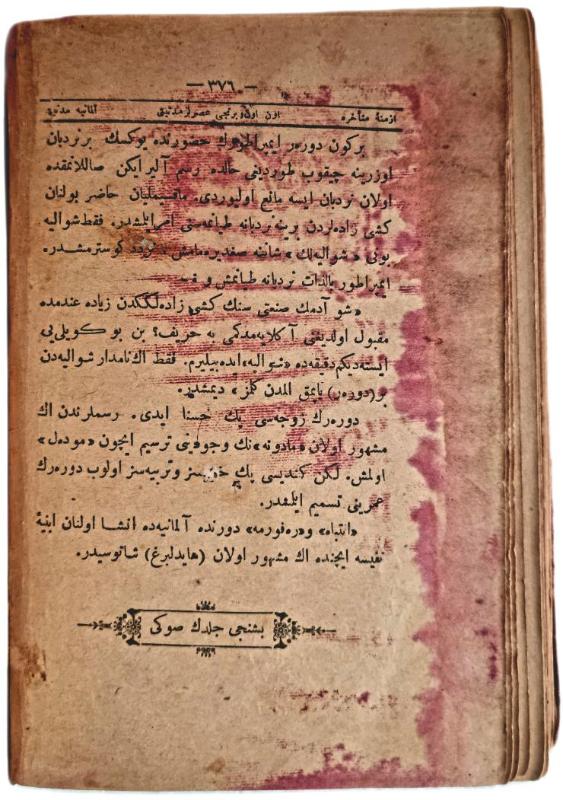 — ٣٧٦ —
ازمنهٔ متأخره اون اون برنجی عصرلر مدنیتی المانیه مدنیتی
برکون دورەر ایمپراطورك حضورنده یوکسك بر نردبان
اوزرینه چیقوب طوردیغی حالده رسم آلیر ایکن صاللانمقده
اولان نردبان ایسه مانع اولیوردی. ماقسیملیان حاضر بولنان
کشی زاده‌لردن برینه نردبانه طیانمه‌سنی امر ایلمشدر. فقط شوالیه
بونی «شوالیه‌لك» شاننه صغدیره‌مامش تردد کوسترمشدر.
ایمپراطور بالذات نردبانه طیانمش و
«شو آدمك صنعتی سنك کشی زاده‌لککدن زیاده عندمده
مقبول اولدیغنی آکلایه‌مدکمی به حریف؟ بن بو کویلی‌یی
ایسته‌دیکم دقیقه‌ده «شوالیه» ایده‌بیلیرم. فقط اك نامدار شوالیه‌دن
بر (دورەر) یاپمق المدن کلمز» دیمشدر.
دورەرك زوجه‌سی پك حسنا ایدی. رسملرندن اك
مشهور اولان «مادونه» نك وجوهنی ترسیم ایچون «مودەل»
اولمش. لکن کندیسی پك خویسز و تربیه‌سز اولوب دورەرك
عمرینی تسمیم ایلمشدر.
«انتباه» و «رەفورمه» دورنده آلمانیه‌ده انشا اولنان ابنیهٔ
نفیسه ایچنده اك مشهور اولان (هایدلبرغ) شاتوسیدر.
بشنجی جلدك صوکی